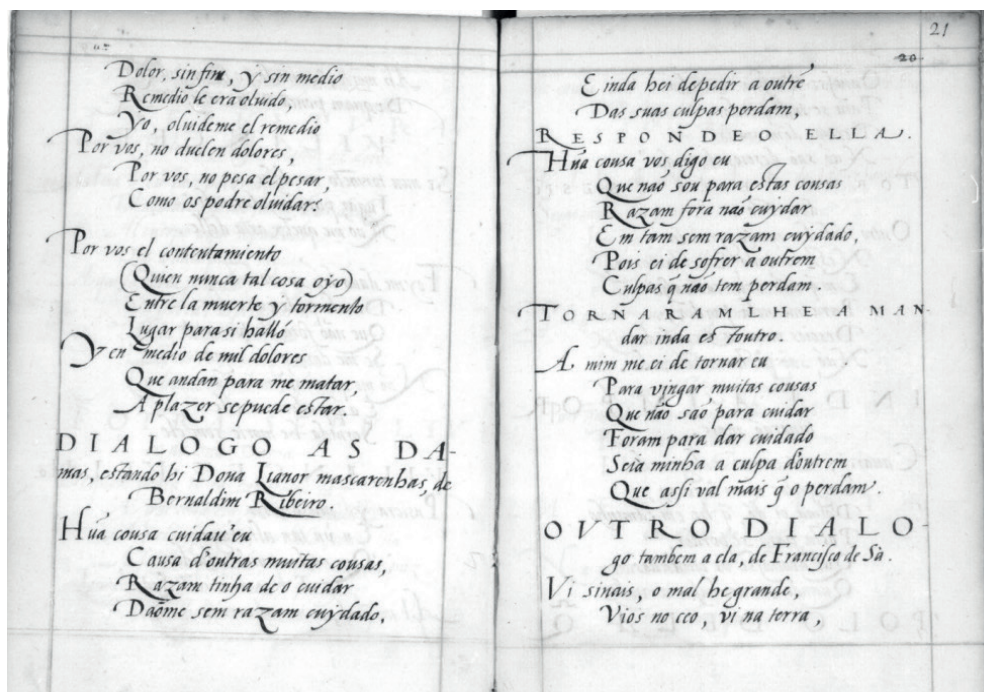 Dolor, sin fin, y sin medio
Remedio le era oluido,
Yo, oluideme el remedio
Por vos, no duelen dolores,
Por vos, no pesa el pesar,
Como os podre oluidar?
Por vos el contentamiento
(Quien nunca tal cosa oyo)
Entre la muerte y tormento
Lugar para si halló
Y en medio de mil dolores
Que andan para me matar,
A plazer se puede estar.
DIALOGO AS DA-
mas, estando hi Dona Lianor mascarenhas, de
Bernaldim Ribeiro.
Hũa cousa cuidau'eu
Causa d'outras muitas cousas,
Razam tinha de o cuidar
Daõme sem razam cuydado,
21
20
E inda hei de pedir a outrẽ
Das suas culpas perdam,
RESPOÑDEO ELLA.
Hũa cousa vos digo eu
Que naõ sou para estas cousas
Razam fora naõ cuydar
Em tam sem razam cuydado,
Pois ei de sofrer a outrem
Culpas q̃ naõ tem perdam.
TORNARAMLHE A MAN-
dar inda est'outro.
A mim me ei de tornar eu
Para vingar muitas cousas
Que naõ saõ para cuidar
Foram para dar cuidado
Seia minha a culpa d'outrem
Que assi val mais q̃ o perdam.
OVTRO DIALO-
go tambem a ela, de Francisco de Sà.
Vi sinais, o mal he grande,
Vios no ceo, vi na terra,